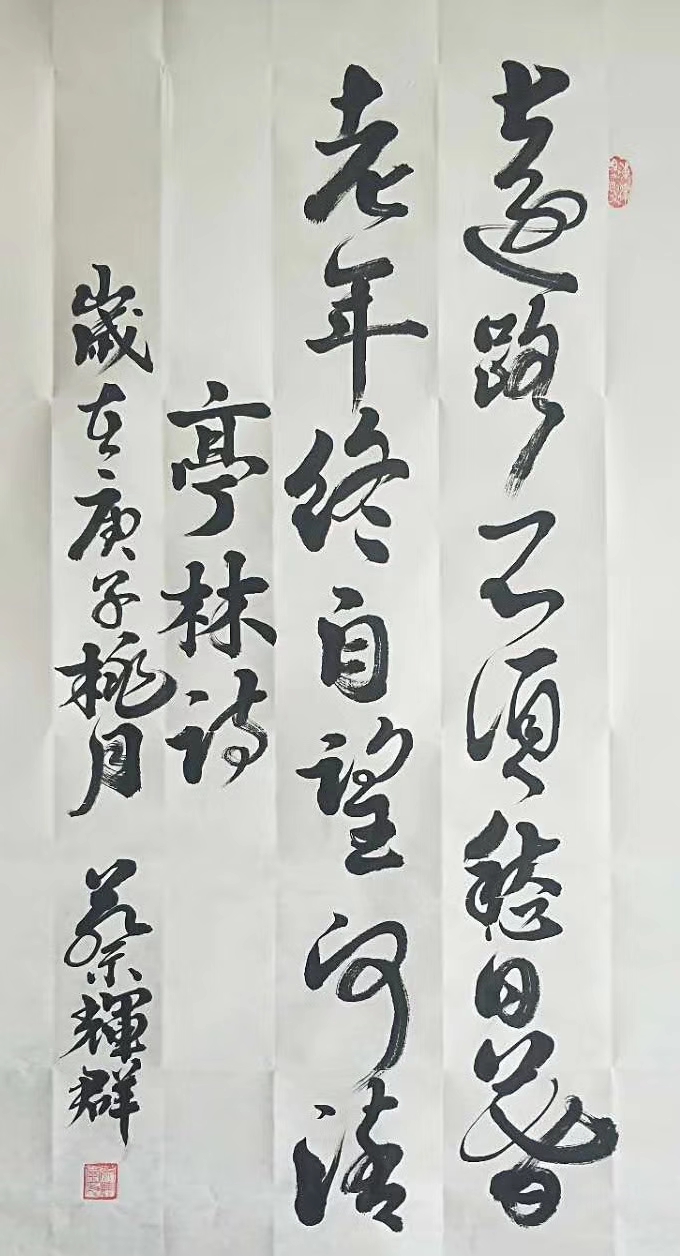 遠路不須愁日暮
老年終自望河清
亭林詩
歲在庚子桃月 蔡輝群